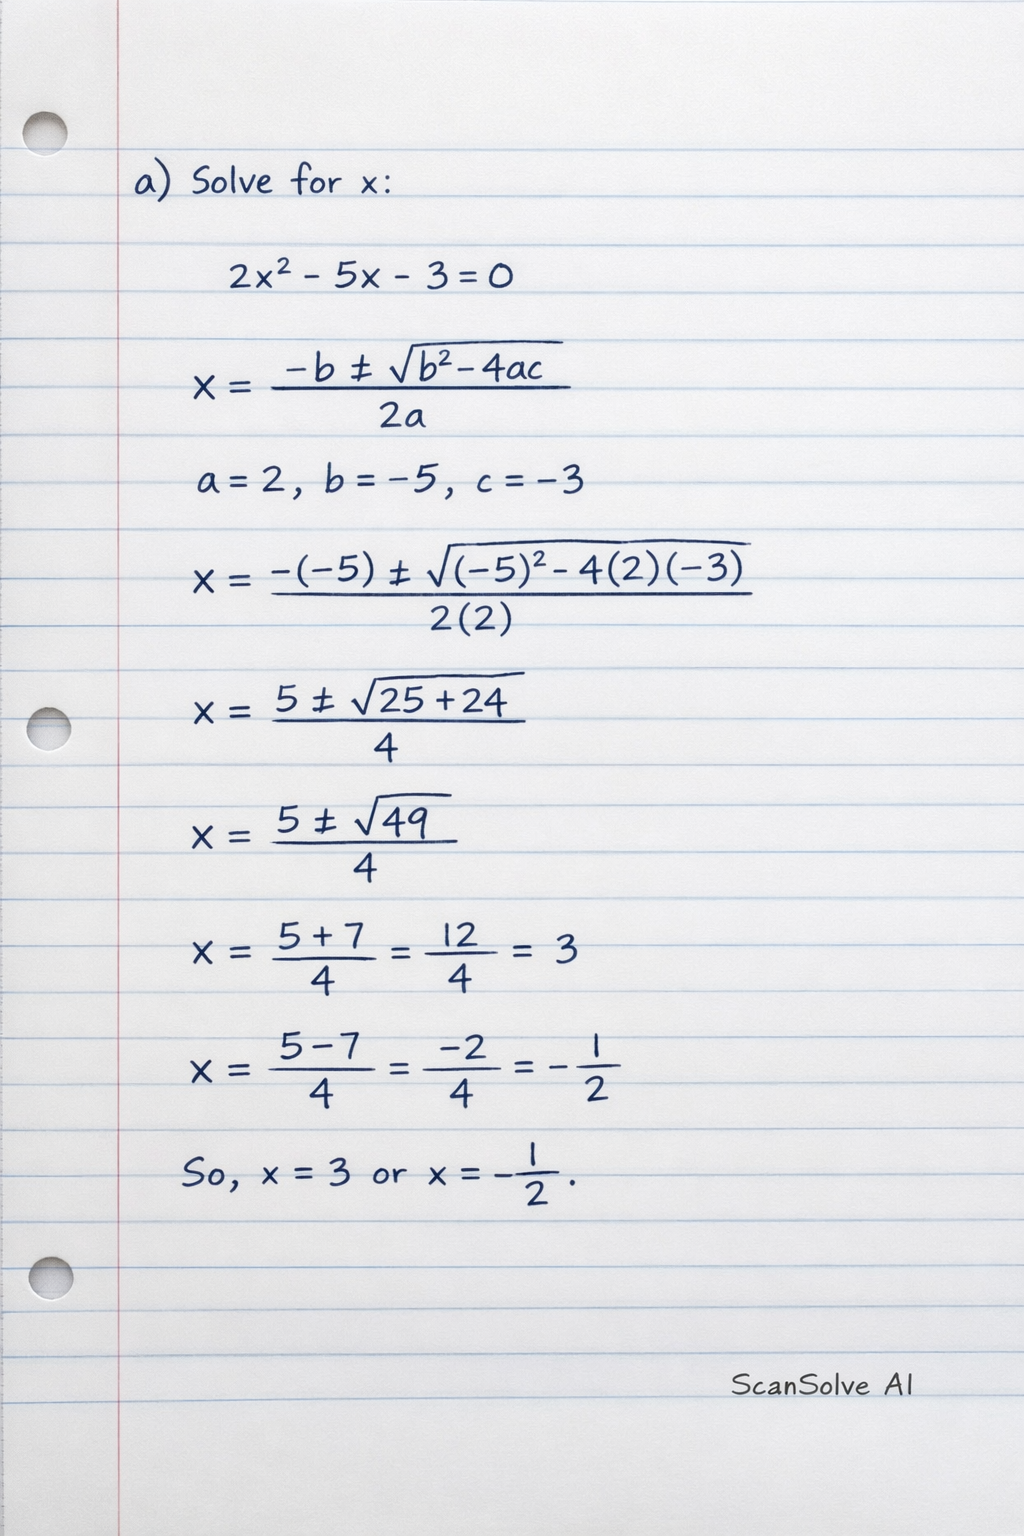 a) Solve for x:
2x² - 5x - 3 = 0
x = (-b ± √(b² - 4ac)) / 2a
a = 2, b = -5, c = -3
x = (-(-5) ± √((-5)² - 4(2)(-3))) / 2(2)
x = (5 ± √(25 + 24)) / 4
x = (5 ± √49) / 4
x = (5 + 7)/4 = 12/4 = 3
x = (5 - 7)/4 = -2/4 = -1/2
So, x = 3 or x = -1/2.
ScanSolve AI